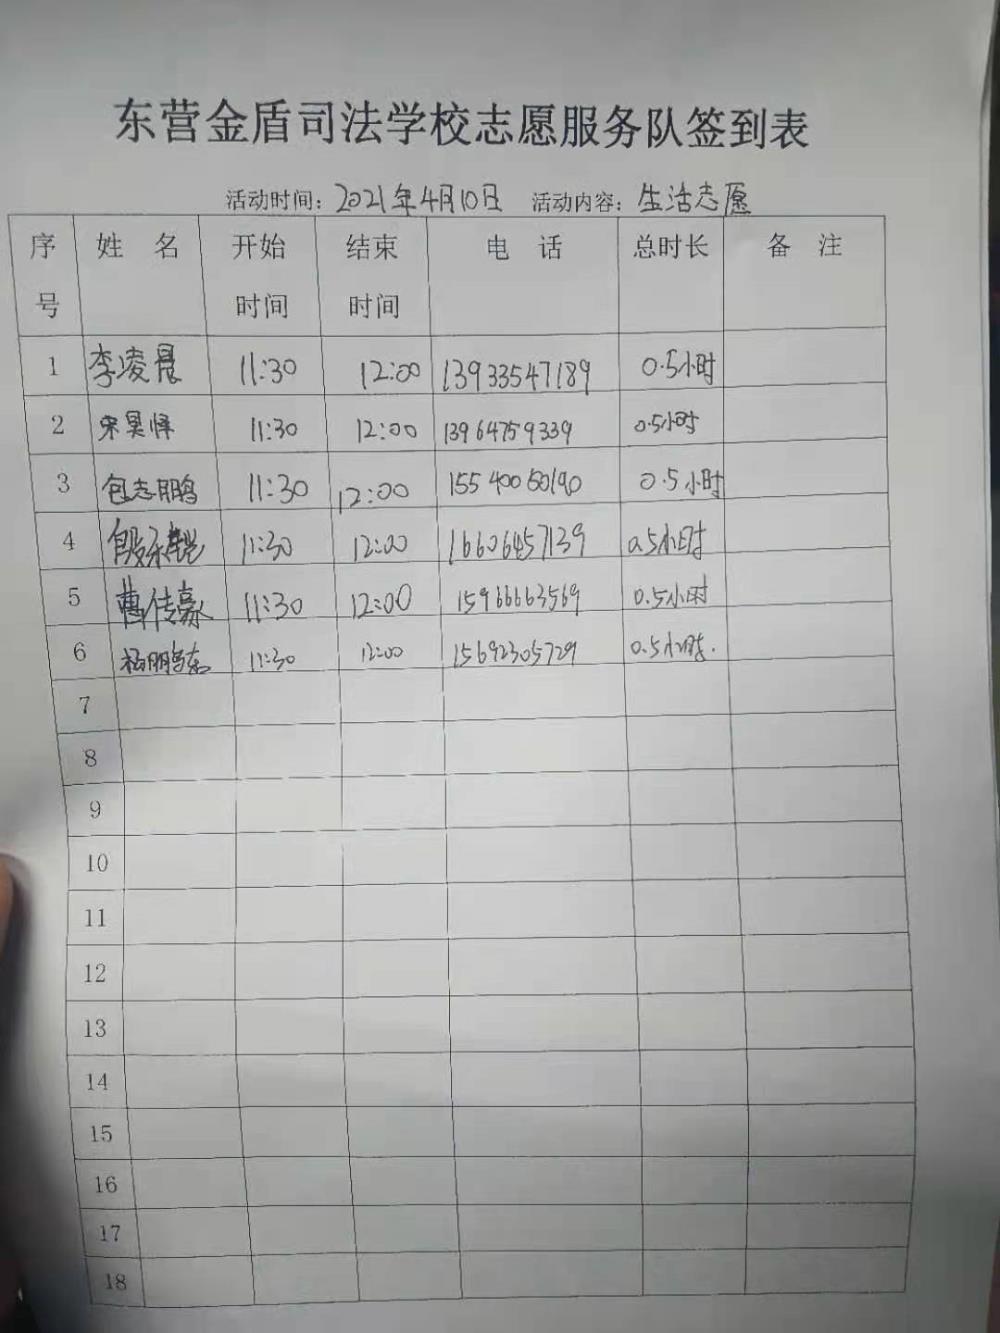 东营金盾司法学校志愿服务队签到表
活动时间：2021年4月10日 活动内容：生活志愿
序号 姓名 开始时间 结束时间 电话 总时长 备注
1 李凌晨 11:30 12:00 13933547189 0.5小时
2 宋昊泽 11:30 12:00 13964759339 0.5小时
3 包志鹏 11:30 12:00 15540050190 0.5小时
4 11:30 12:00 16606457139 0.5小时
5 曹传豪 11:30 12:00 15966663569 0.5小时
6 11:30 12:00 15692305729 0.5小时.
7
8
9
10
11
12
13
14
15
16
17
18